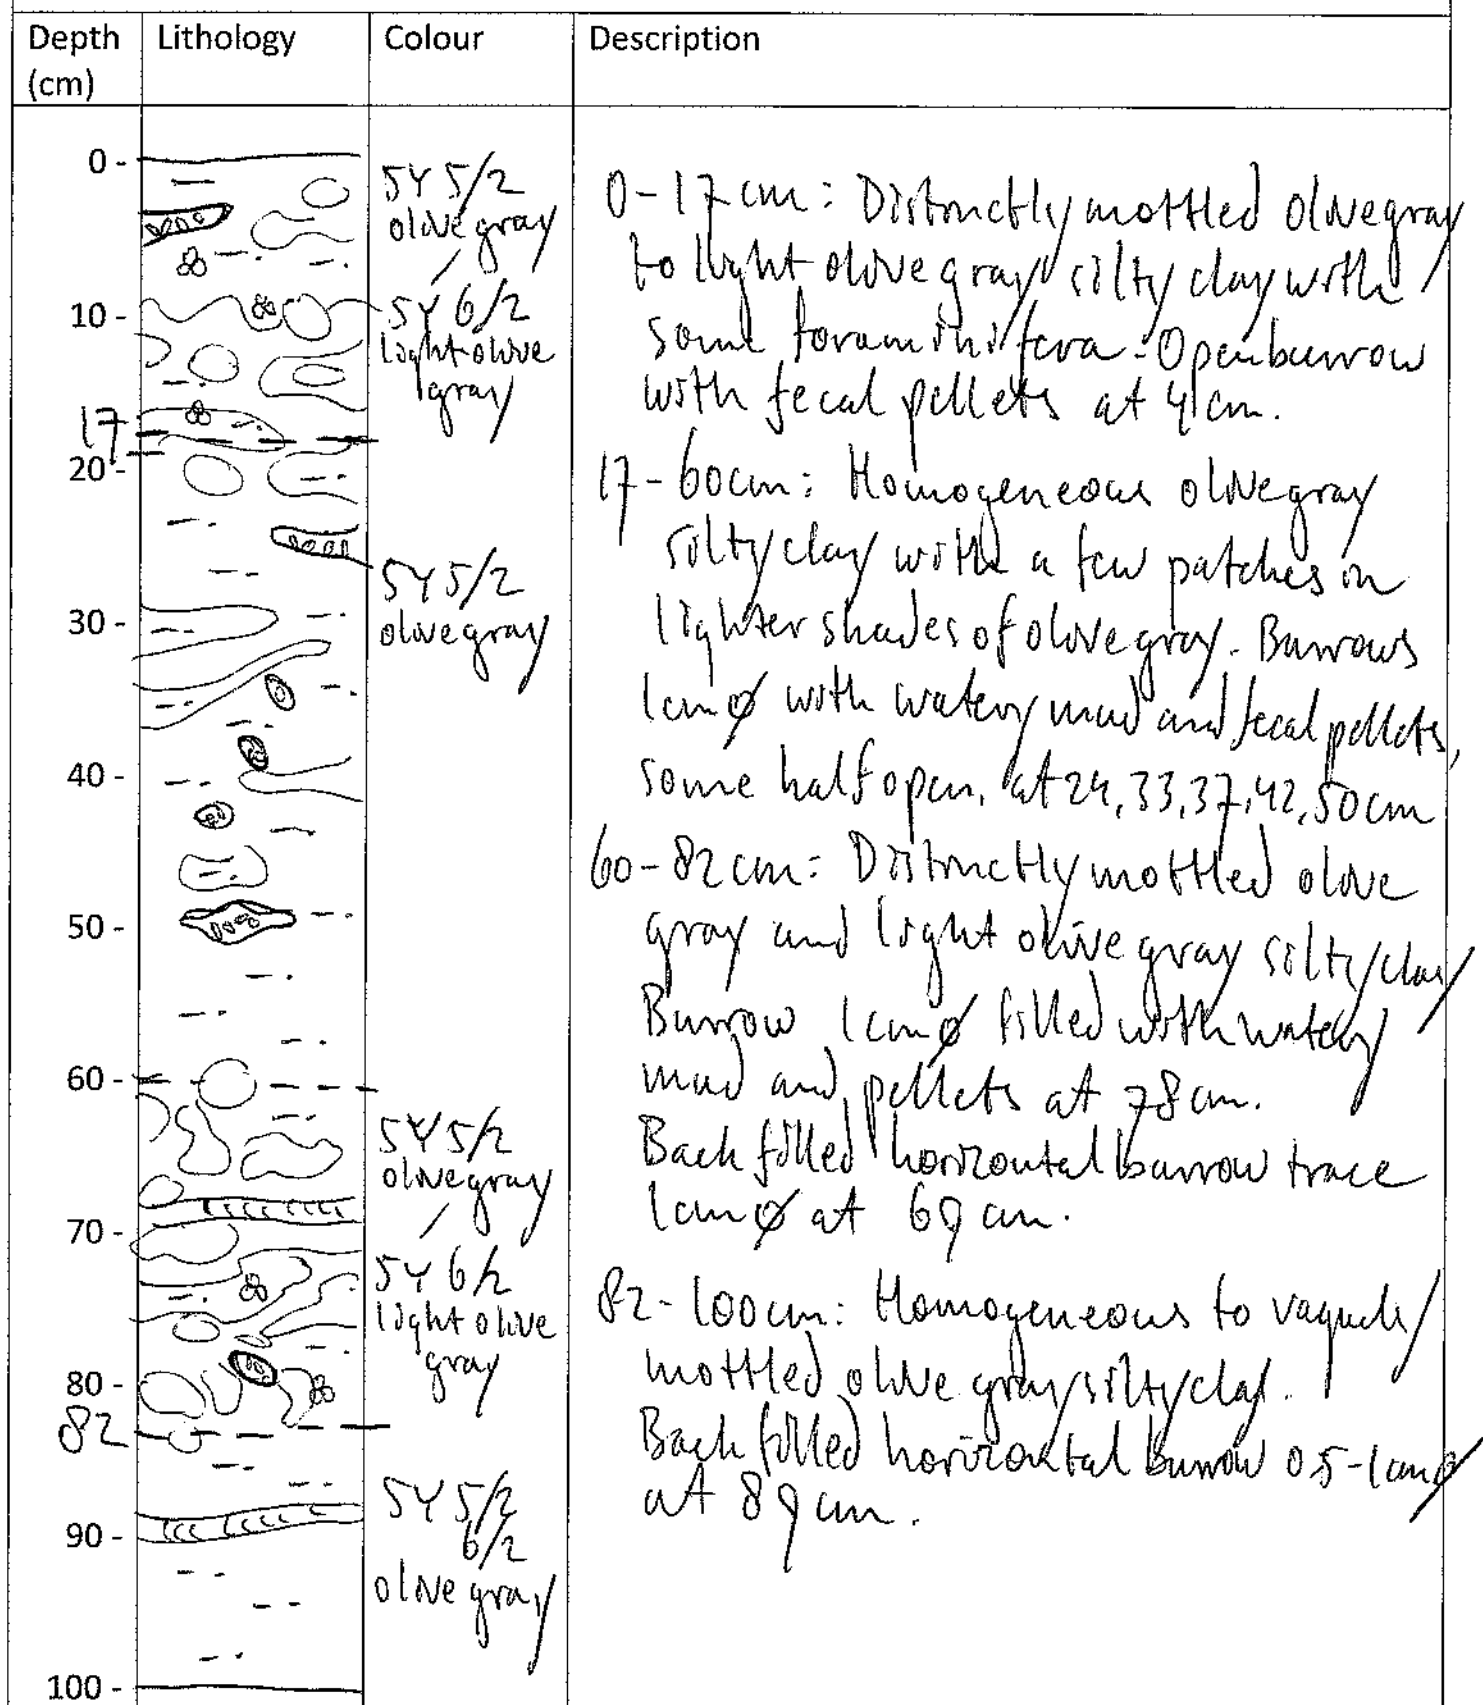 Depth (cm) Lithology Colour Description
0 -
10 -
17
20 -
30 -
40 -
50 -
60 -
70 -
80 -
82
90 -
100 -
5Y 5/2
olive gray
/
5Y 6/2
light olive
gray
5Y 5/2
olive gray
5Y 5/2
olive gray
/
5Y 6/2
light olive
gray
5Y 5/2
6/2
olive gray
0-17cm: Distinctly mottled olive gray
to light olive gray silty clay with
some foraminifera. Open burrow
with fecal pellets at 4 cm.
17-60cm: Homogeneous olive gray
silty clay with a few patches in
lighter shades of olive gray. Burrows
1cm ø with watery mud and fecal pellets,
some half open, at 24, 33, 37, 42, 50cm
60-82cm: Distinctly mottled olive
gray and light olive gray silty clay
Burrow 1cm ø filled with watery
mud and pellets at 78cm.
Back filled horizontal burrow trace
1cm ø at 69 cm.
82-100cm: Homogeneous to vaguely
mottled olive gray silty clay.
Back filled horizontal burrow 0.5-1cm ø
at 89 cm.